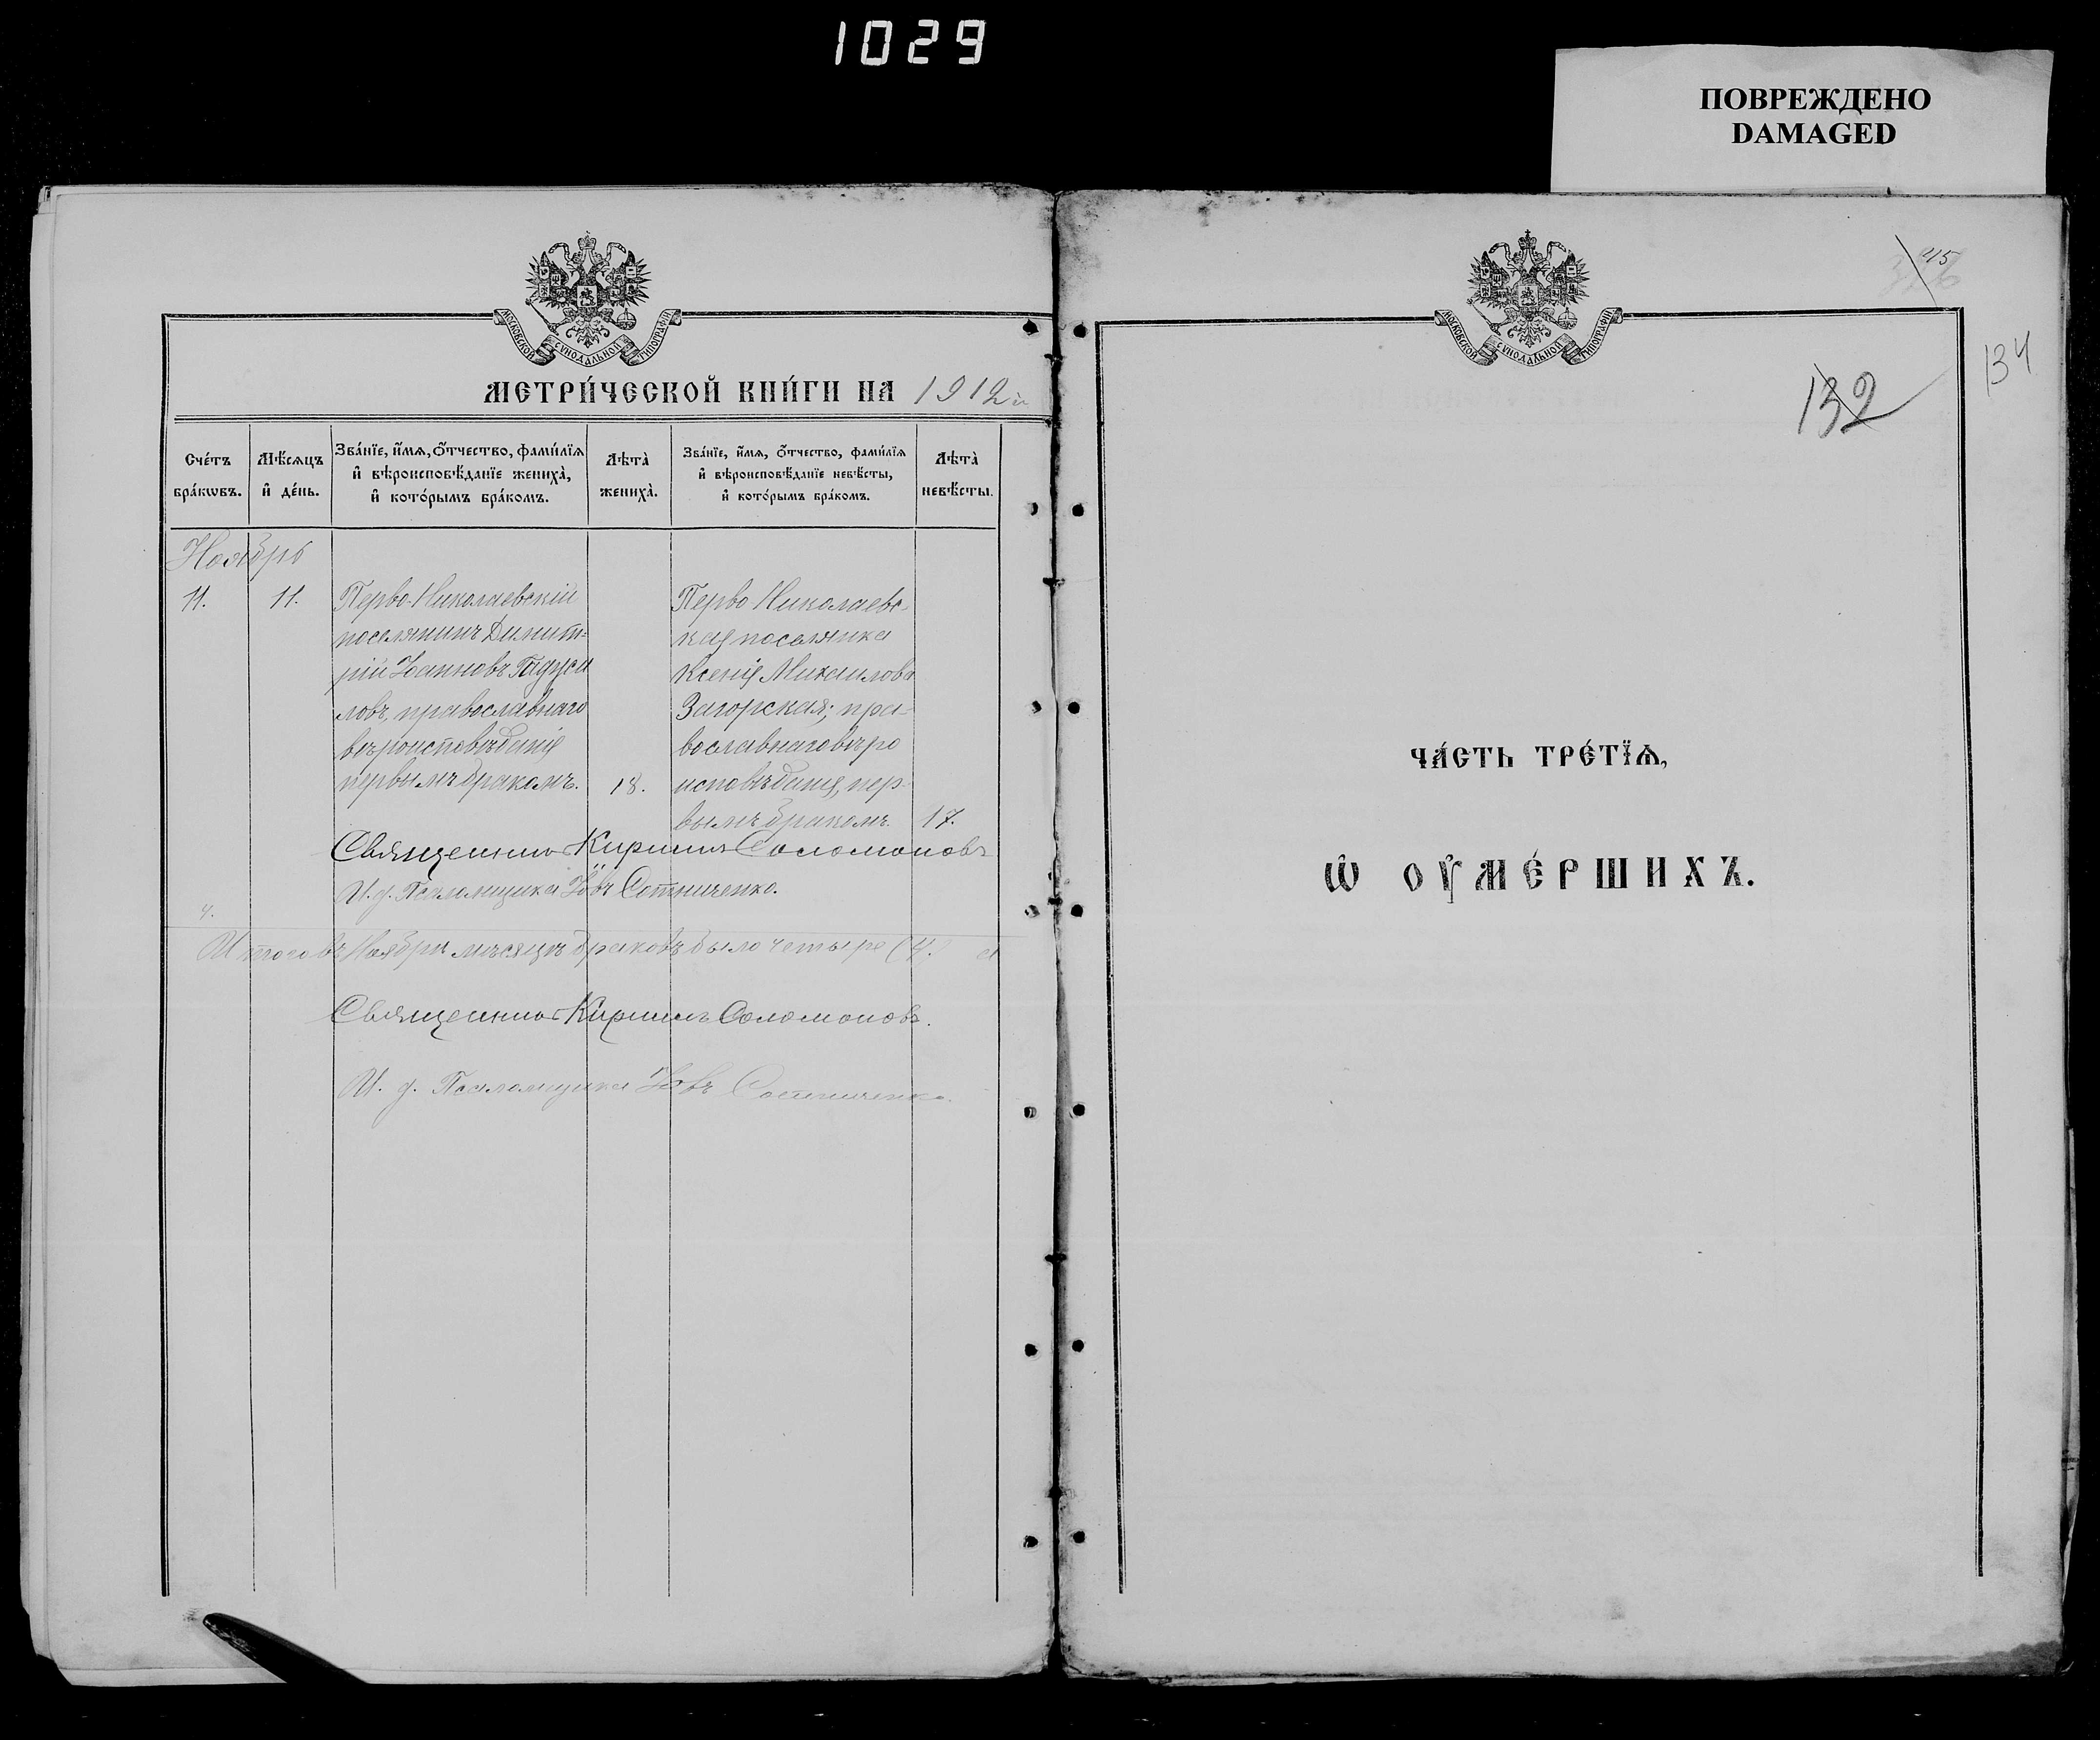 1029
ПОВРЕЖДЕНО
DAMAGED
МОСКОВСКОЙ СѴНОДАЛЬНОЙ ТИПОГРАФІИ
МЕТРИ́ЧЕСКОЙ КНИ́ГИ НА 1912
Сче́тъ бра́кѡвъ.
Мѣ́сяцъ и҆ де́нь.
Зва́нїе, и҆́мѧ, ѻ҆́тчество, фами́лїѧ
и҆ вѣроисповѣ́данїе жениха̀,
и҆ кото́рымъ бра́комъ.
Лѣта̀ жениха̀.
Зва́нїе, и҆́мѧ, ѻ҆́тчество, фами́лїѧ
и҆ вѣроисповѣ́данїе невѣ́сты,
и҆ кото́рымъ бра́комъ.
Лѣта̀ невѣ́сты.
Ноябрь
11.
11.
Перво-Николаевскій
поселянинъ Димит=
рій Іоанновъ
ловъ, православнаго
вѣроисповѣданія
первымъ бракомъ.
18.
Перво Николаевс-
кая поселянка
Ксенія Михаилова
Загорская; пра-
вославнаго вѣро
исповѣданія, пер-
вымъ бракомъ.
17.
Священникъ Кириллъ Соломоновъ
И. д. Псаломщика Іовъ Сотниченко.
4.
Итого въ Ноябрѣ мѣсяцѣ браковъ было четыре (4.
Священникъ Кириллъ Соломоновъ.
И. д. Псаломщика Іовъ Сотниченко.
МОСКОВСКОЙ СѴНОДАЛЬНОЙ ТИПОГРАФІИ
45
134
132
ЧА́СТЬ ТРЕ́ТЇѦ,
Ѡ҆ ОУ҆МЕ́РШИХЪ.